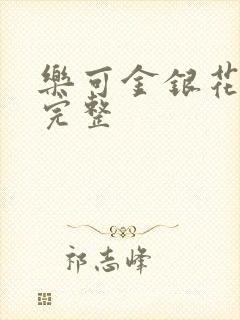 樂可金銀花
完整
祁志峰